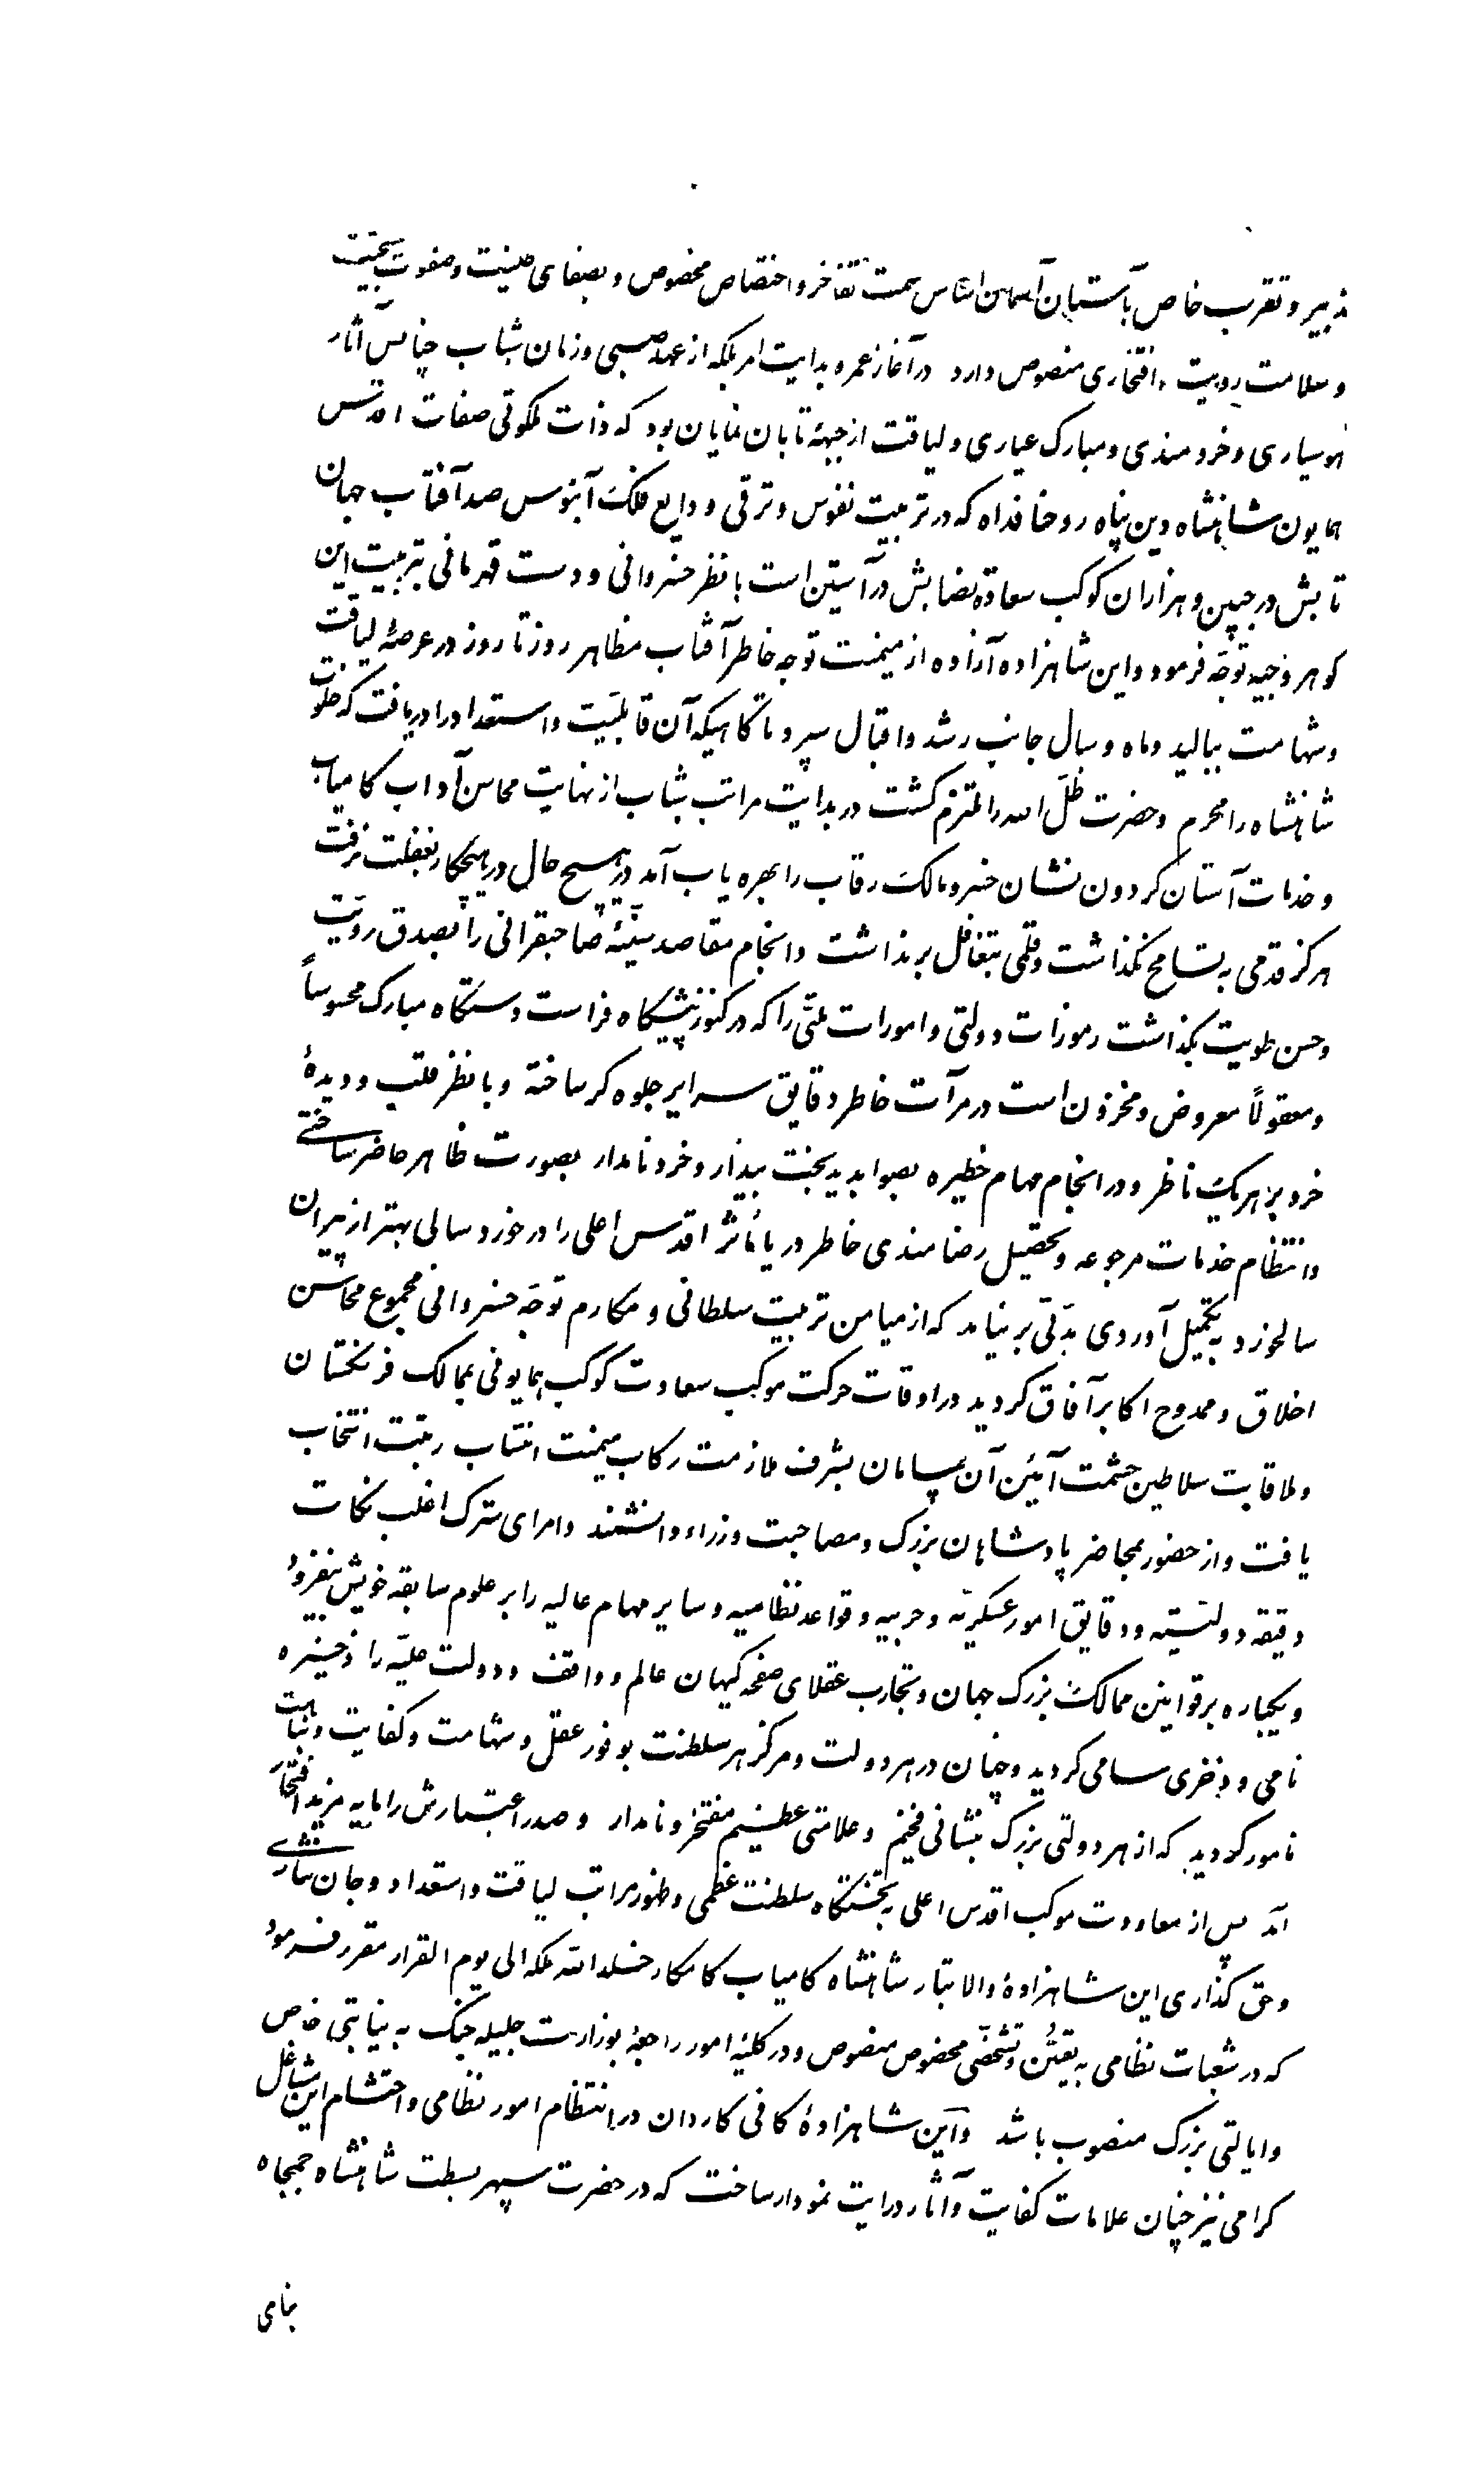 تدبیر و تقرب خاص بآستان آسمان اساس سمت تفاخر و اختصاص مخصوص و بصفای طینت و صفوت سجیت
و سلامت رویت افتخاری منصوص دارد در آغاز عمر و بدایت امر بلکه از عهد صبی و زمان شباب چنانس آثار
هوسیاری و خردمندی و مبارک عیاری و لیاقت از جبهۀ تابان نمایان بود که ذات ملکوتی صفات اقدس
همایون شاهنشاه دین پناه روحنا فداه که در تربیت نفوس و ترقی ودایع فلک آبنوس صد آفتاب جهان
تابش در جبین و هزاران کوکب سعادة نضابش در آستین است با نظر خسروانی و دست قهرمانی بتربیت این
کوهر وجیه توجّه فرمود و این شاهزاده آزاده از میمنت توجه خاطر آفتاب مظاهر روز تا روز در عرصۀ لیاقت
و شهامت ببالید و ماه و سال جانب رشد و اقبال سپرد تا کاهیکه آن قابلیّت و استعداد را دریافت که خلوت
شاهنشاه را محرم و حضرت ظلّ الله را ملتزم کشت در بدایت مراتب شباب از نهایت محاسن آداب کامیاب
و خدمات آستان کردون نشان خسرو مالک رقاب را بهره یاب آمد در هیچ حال در هیچکار بغفلت نرفت
هرکز قدمی به تسامح نکذاشت و قلمی بتغافل برنداشت و انجام مقاصد سنیّۀ صاحبقرانی را بصدق رویّت
و حسن طویت بکذاشت رموزات دولتی و امورات ملتّی را که در کنوز پیشکاه فراست دستکاه مبارک محسوساً
و معقولاً معروض و مخزون است در مرآت خاطر دقایق سرایر جلوه کر ساخته و با نظر قلب و دیدۀ
خرد بر هریک ناظر و در انجام مهام خطیره بصوابدید بخت بیدار و خرد نامدار بصورت ظاهر حاضر ساختی
و انتظام خدمات مرجوعه و تحصیل رضامندی خاطر دریا مآثر اقدس اعلی را در خورد سالی بهتر از پیران
سالخورد به تکمیل آوردی مدّتی بر نیامد که از میامن تربیت سلطانی و مکارم توجّه خسروانی مجموع محاسن
اخلاق و ممدوح اکابر آفاق کردید در اوقات حرکت موکب سعادت کوکب همایونی بممالک فرنکستان
و ملاقات سلاطین حشمت آئین آن سامان بشرف ملازمت رکاب میمنت انتساب رتبت انتخاب
یافت و از حضور محاضر پادشاهان بزرک و مصاحبت وزراء دانشمند و امرای سترک اغلب نکات
دقیقه دولتیّه و دقایق امور عسکریّه و حربیه و قواعد نظامیه و سایر مهام عالیه را بر علوم سابقه خویش بیفزود
و یکباره بر قوانین ممالک بزرک جهان و تجارب عقلای صفحه کیهان عالم و واقف و دولت علیّه را ذخیره
نامی و ذخری سامی کردید و چنان در هر دولت و مرکز هر سلطنت بوفور عقل و شهامت و کفایت و نباهت
نامور کردید که از هر دولتی بزرک بنشانی فخیم و علامتی عظیم مفتخر و نامدار و صدر اعتبارش را مایه مزید افتخار
آمد پس از معاودت موکب اقدس اعلی به تختکاه سلطنت عظمی و ظهور مراتب لیاقت و استعداد و جان نثاری
و حق کذاری این شاهزادۀ والاتبار شاهنشاه کامیاب کامکار خلدالله ملکه الی یوم القرار مقرر فرمود
که در شعبات نظامی به تعیّن و تشخّصی مخصوص منصوص و در کلیّۀ امور راجعۀ بوزارت جلیله جنک به نیابتی خاص
و ایالتی بزرک منصوب باشد و این شاهزادۀ کافی کاردان در انتظام امور نظامی و احتشام این مشاغل
کرامی نیز چنان علامات کفایت و آثار درایت نمودار ساخت که در حضرت سپهر بسطت شاهنشاه جمجاه
بنامی